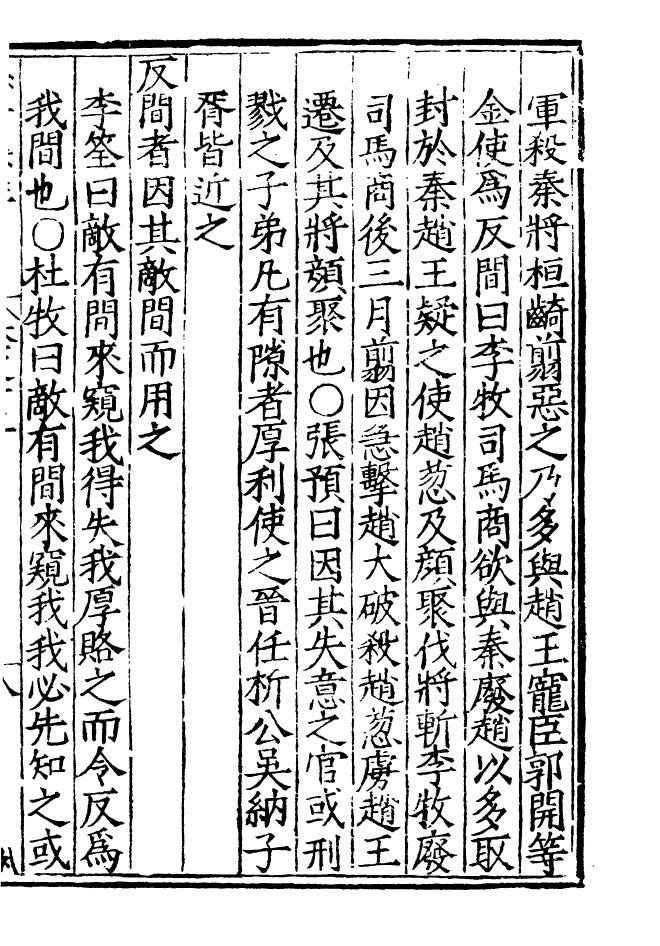 軍殺秦將桓齮翦惡之乃多與趙王寵臣郭開等
金使爲反間曰李牧司馬商欲與秦廢趙以多取
封於秦趙王疑之使趙葱及顔聚代將斬李牧廢
司馬商後三月翦因急擊趙大破殺趙葱虜趙王
遷及其將顔聚也○張預曰因其失意之官或刑
戮之子弟凡有隙者厚利使之晉任析公吴納子
胥皆近之
反間者因其敵間而用之
李筌曰敵有間來窺我得失我厚賂之而令反爲
我間也○杜牧曰敵有間來窺我我必先知之或